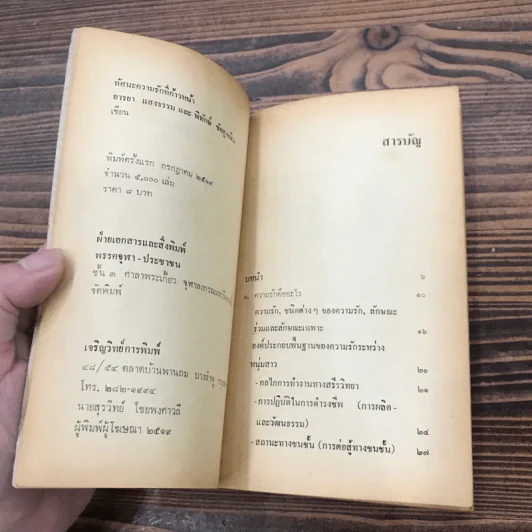 ทัศนะความรักที่ก้าวหน้า
อารยา แสงธรรม และ พิทักษ์
เขียน
พิมพ์ครั้งแรก กรกฎาคม ๒๕๑๙
จำนวน ๕,๐๐๐ เล่ม
ราคา ๘ บาท
ฝ่ายเอกสารและสิ่งพิมพ์
พรรคจุฬา-ประชาชน
ชั้น ๓ ศาลาพระเกี้ยว
จัดพิมพ์
เจริญวิทย์การพิมพ์
๔๘/๕๔ ตลาดบ้านพานถม บางลำพู
โทร. ๒๘๒-๑๙๙๔
นายสุรวิทย์ ไชยพงศาวลี
ผู้พิมพ์ผู้โฆษณา ๒๕๑๙
สารบัญ
บทนำ ๖
๑. ความรักคืออะไร ๑๐
ความรัก, ชนิดต่างๆ ของความรัก, ลักษณะ
ร่วมและลักษณะเฉพาะ ๑๖
องค์ประกอบพื้นฐานของความรักระหว่าง
หนุ่มสาว ๒๐
-กลไกการทำงานทางสรีรวิทยา ๒๑
-การปฏิบัติในการดำรงชีพ (การผลิต-
และวัฒนธรรม) ๒๔
-สถานะทางชนชั้น (การต่อสู้ทางชนชั้น) ๒๗